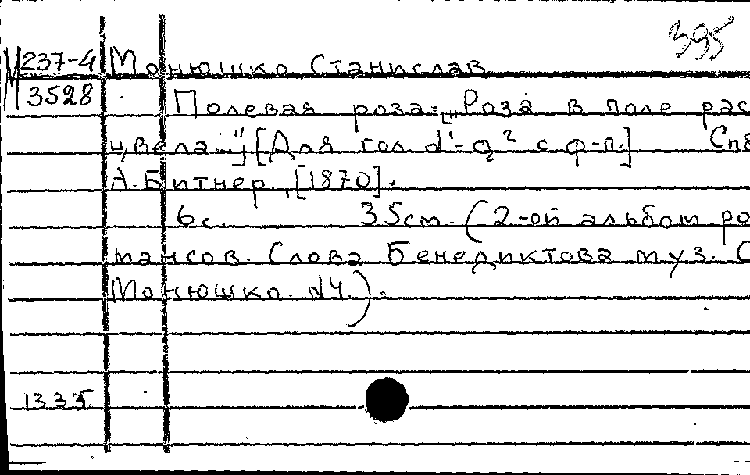 395
М237-4 Монюшко Станислав
3528 Полевая роза: „Роза в поле рас
цвела..." [Для гол. d¹-g² с ф-п.] Спб
А. Битнер, [1870].
6 с. 35 см. (2-ой альбом ро
мансов. Слова Бенедиктова муз. С
Монюшко. N4.).
1335